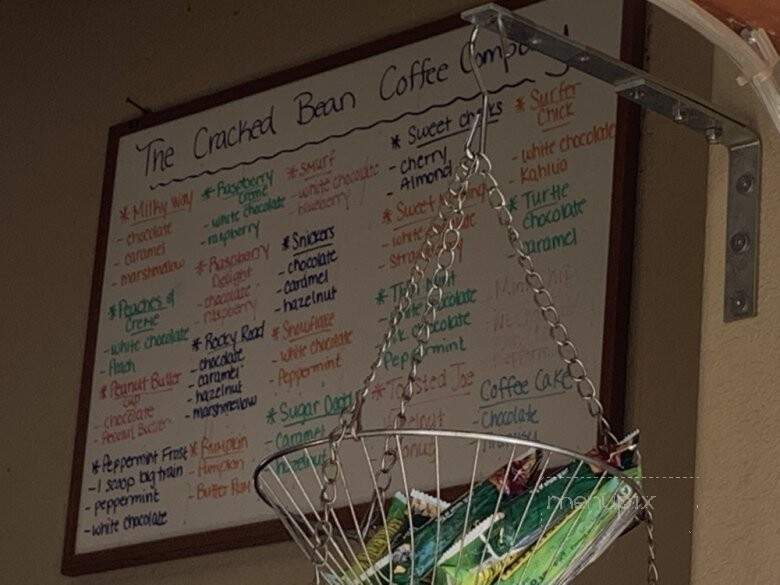 The Cracked Bean Coffee
* Milky Way
- chocolate
- caramel
- marshmallow
* Peaches &
Creme
- white chocolate
- Peach
* Peanut Butter
Cup
- chocolate
- Peanut Butter
* Peppermint Frost
- 1 scoop big train
- peppermint
- white chocolate
* Raspberry
Creme
- white chocolate
- raspberry
* Raspberry
Delight
- chocolate
- raspberry
* Rocky Road
- chocolate
- caramel
- hazelnut
- marshmallow
* Pumpkin
- Pumpkin
- Butter Rum
* Smurf
- white chocolate
- blueberry
* Snickers
- chocolate
- caramel
- hazelnut
* Snowflake
- white chocolate
- Peppermint
* Sugar
- Caramel
- hazelnut
* Sweet
- cherry
- Almond
* Sweet
- white
* Thin Mint
- white chocolate
chocolate
Peppermint
* Toasted Joe
* Surfer
Chick
- white chocolate
- Kahlua
* Turtle
- Chocolate
- caramel
Coffee Cake
- Chocolate
menupix